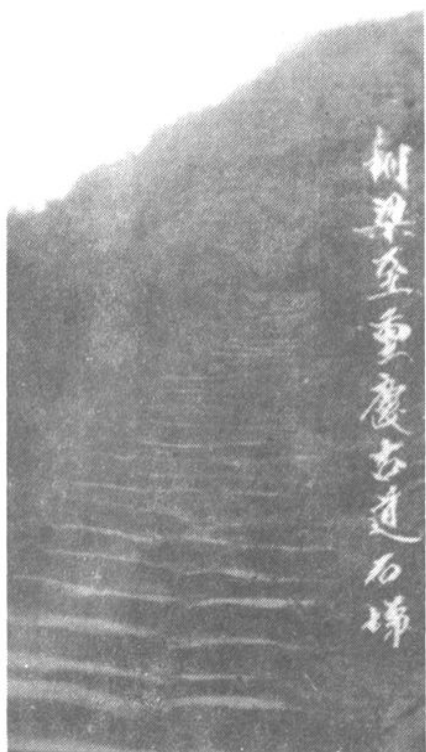 铜梁至重庆古道石梯